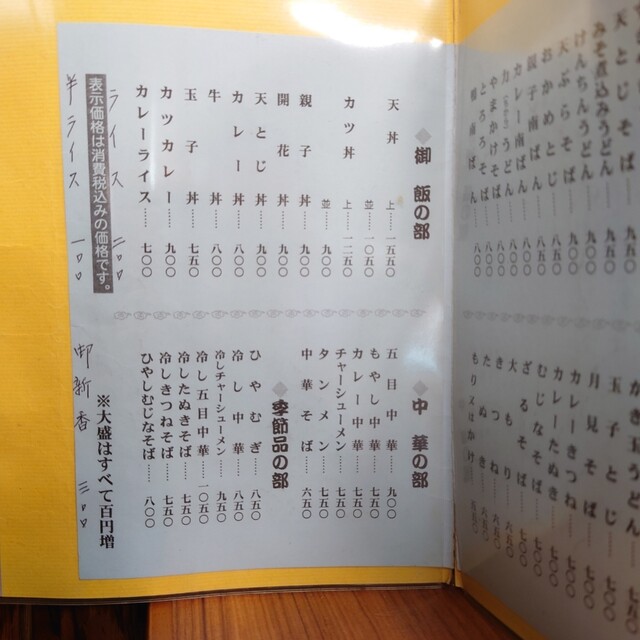 天とじそば
みそ煮込みうどん
けんちんうどん
天ぷらそば
おかめとじ
親子南ばん
カレー南ばん
力うどん
やまかけそば
とろろそば
かき玉うどん
月見そば
カレーきつね
カレーたぬき
むじなそば
ざるそば
大もり
きつね
たぬき
もり又はかけ
◆御飯の部
天丼 上…一五五〇
並…一〇五〇
カツ丼 上…一二五〇
並……九〇〇
親子丼……九〇〇
開花丼……九〇〇
天とじ丼……九〇〇
カレー丼……八〇〇
牛丼……八〇〇
玉子丼……七五〇
カツカレー……九〇〇
カレーライス……七〇〇
◆中華の部
五目中華……九〇〇
もやし中華……七五〇
カレー中華……七五〇
チャーシューメン……七五〇
タンメン……七五〇
中華そば……六五〇
◆季節品の部
ひやむぎ……八五〇
冷し中華……八五〇
冷しチャーシューメン……九五〇
冷し五目中華…一〇五〇
冷したぬきそば……七五〇
冷しきつねそば……七五〇
ひやしむじなそば……八〇〇
ライス 二〇〇
表示価格は消費税込みの価格です。
※大盛はすべて百円増
半ライス 一〇〇
御新香 三〇〇